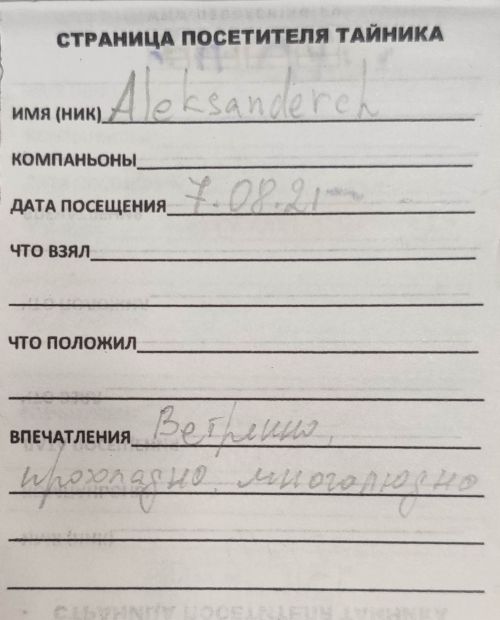 СТРАНИЦА ПОСЕТИТЕЛЯ ТАЙНИКА
ИМЯ (НИК) Aleksanderch
КОМПАНЬОНЫ
ДАТА ПОСЕЩЕНИЯ 7.08.21
ЧТО ВЗЯЛ
ЧТО ПОЛОЖИЛ
ВПЕЧАТЛЕНИЯ Ветрянно,
прохладно, многолюдно